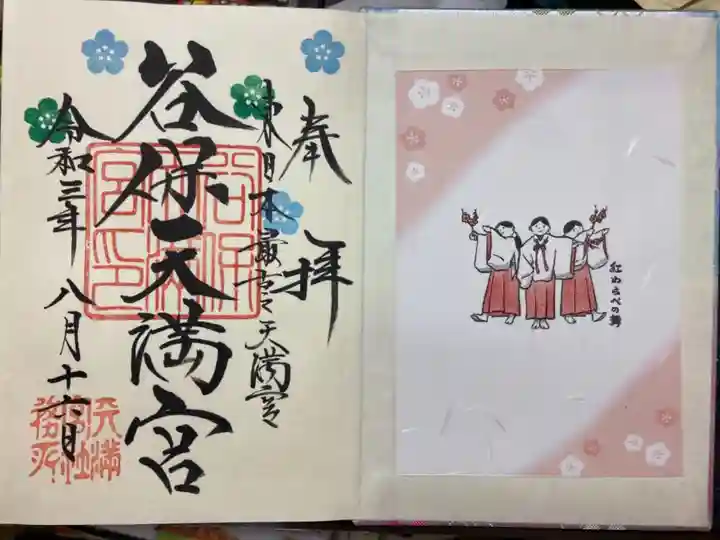 奉拝
東日本最古之天満宮
谷保天満宮
令和三年八月十六日
谷保
天満
宮印
天満
宮社
務所
紅わらべの舞